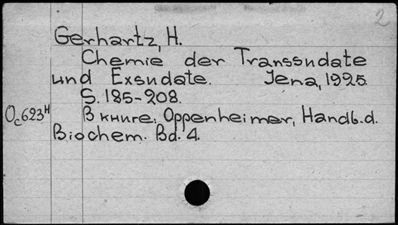 2
Gerhartz, H.
Chemie der Transsudate
und Exsudate. Jena, 1925.
S. 185-208.
Oc623н В книге: Oppenheimer, Handb. d.
Biochem. Bd. 4.